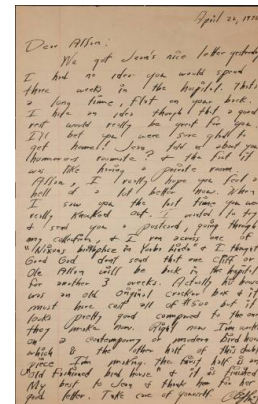 April 22, 19
Dear Alton:
We got Jean's nice letter yesterday
I had no idea you would spend
three weeks in the hospital. That's
a long time, flat on your back.
I had an idea though that a good
rest would really be good for you
I'll bet you were sure glad to
get home! Jean told us about your
humorous roomate? & the
was like having a private room
Alton, I really hope you feel a
hell of a lot better now. When
I saw you the last time you were
really knocked out. I wanted to try
& send you a postcard, going through
my collection, & I ran across one of
"Nixons birthplace in Yorba Linda" & I thought
Good God dont send that one Cliff or
Ole Alton will be back in the hospital
for another 3 weeks. Actually
was an old original box & it
must have cost all of $500 but it
looks pretty good compared to the one
they make now. Right now I'm working
on a contemporary or modern bird house
which is the other half of this
piece I'm making. The first half being
"Old Fashioned bird house" & it is finished
My best to Jean & thank her for her
good letter. Take care of yourself.